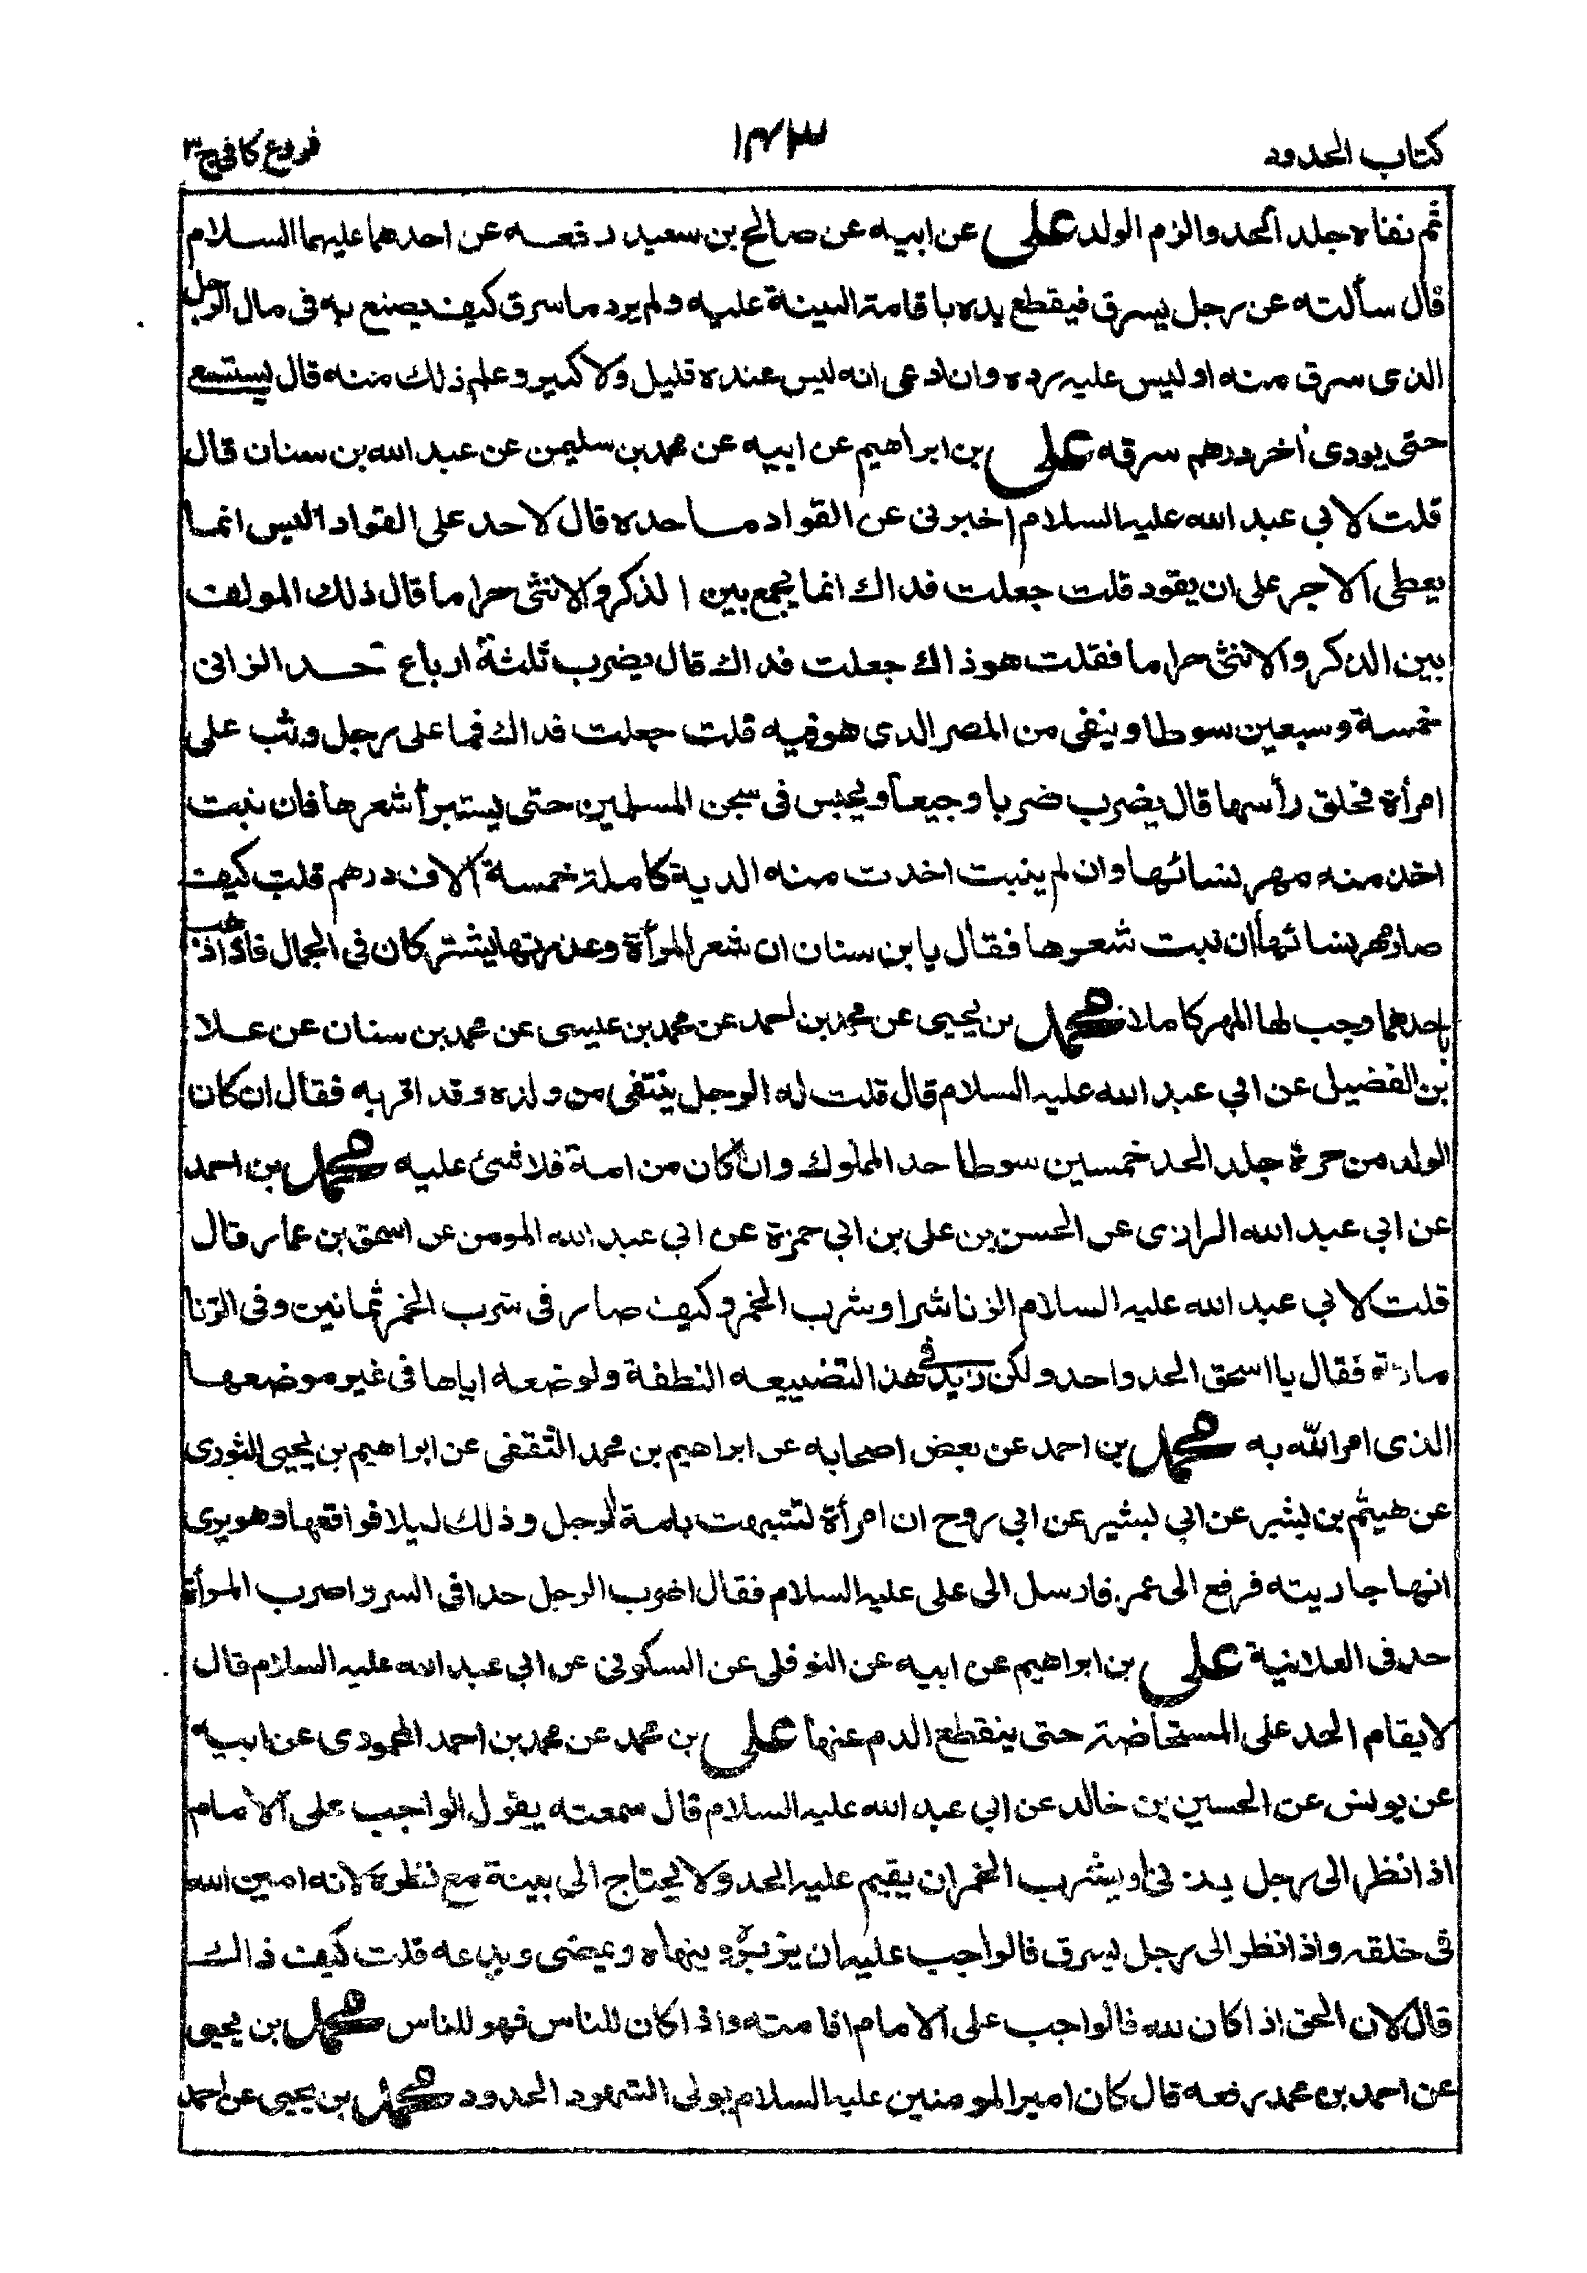 كتاب الحدود
١٤٣
فروع كافى ج ٣
ثم نفاه جلد الحد والزم الولد على عن ابيه عن صالح بن سعيد رفعه عن احدهما عليهما السلام
قال سألته عن رجل يسرق فيقطع يده باقامة البينة عليه ولم يرد ما سرق كيف يصنع به فى مال الرجل
الذى سرق منه او ليس عليه رده وان ادعى انه ليس عنده قليل ولا كثير وعلم ذلك منه قال يستسع
حتى يودى أخر درهم سرقه على بن ابراهيم عن ابيه عن محمد بن سليمن عن عبد الله بن سنان قال
قلت لابي عبد الله عليه السلام اخبرنى عن القواد ما حده قال لا حد على القواد اليس انما
يعطى الاجر على ان يقود قلت جعلت فداك انما يجمع بين الذكر والانثى حراما قال ذلك المولف
بين الذكر والانثى حراما فقلت هو ذاك جعلت فداك قال يضرب ثلثة ارباع حد الزانى
خمسة وسبعين سوطا وينفى من المصر الذى هو فيه قلت جعلت فداك فما على رجل وثب على
امرأة فحلق رأسها قال يضرب ضربا وجيعا ويحبس فى سجن المسلمين حتى يستبرأ شعرها فان نبت
اخذ منه مهر نسائها وان لم ينبت اخذت منه الدية كاملة خمسة آلاف درهم قلت كيف
صار مهر نسائها ان نبت شعرها فقال يا بن سنان ان شعر المرأة وعذرتها يشتركان فى الجمال فاذا اذهب
باحدهما وجب لها المهر كاملا محمد بن يحيى عن محمد بن احمد عن محمد بن عيسى عن محمد بن سنان عن علا
بن الفضيل عن ابي عبد الله عليه السلام قال قلت له الرجل ينتفى من ولده وقد اقر به فقال ان كان
الولد من حرة جلد الحد خمسين سوطا حد المملوك وان كان من امة فلا شئ عليه محمد بن احمد
عن ابي عبد الله الرازى عن الحسن بن على بن ابي حمزة عن ابي عبد الله المومن عن اسحق بن عمار قال
قلت لابي عبد الله عليه السلام الزنا شر او شرب الخمر وكيف صار فى شرب الخمر ثمانين وفى الزنا
مائة فقال يا اسحق الحد واحد ولكن زيد فى هذا لتضييعه النطفة ولوضعه اياها فى غير موضعها
الذى امر الله به محمد بن احمد عن بعض اصحابه عن ابراهيم بن محمد الثقفى عن ابراهيم بن يحيى الثورى
عن هيثم بن بشير عن ابي بشير عن ابي روح ان امرأة تشبهت بامة لرجل وذلك ليلا فواقعها وهو يرى
انها جاريته فرفع الى عمر فارسل الى على عليه السلام فقال اضرب الرجل حدا فى السر واضرب المرأة
حد فى العلانية على بن ابراهيم عن ابيه عن النوفلى عن السكونى عن ابي عبد الله عليه السلام قال
لا يقام الحد على المستحاضة حتى ينقطع الدم عنها على بن محمد عن محمد بن احمد المحمودى عن ابيه
عن يونس عن الحسين بن خالد عن ابي عبد الله عليه السلام قال سمعته يقول الواجب على الامام
اذا نظر الى رجل يزنى او يشرب الخمر ان يقيم عليه الحد ولا يحتاج الى بينة مع نظره لانه امين الله
فى خلقه واذا نظر الى رجل يسرق فالواجب عليه ان يزبره وينهاه ويمضى ويدعه قلت كيف ذالك
قال لان الحق اذا كان لله فالواجب على الامام اقامته واذا كان للناس فهو للناس محمد بن يحيى
عن احمد بن محمد رفعه قال كان امير المومنين عليه السلام يولى الشهود الحدود محمد بن يحيى عن احمد